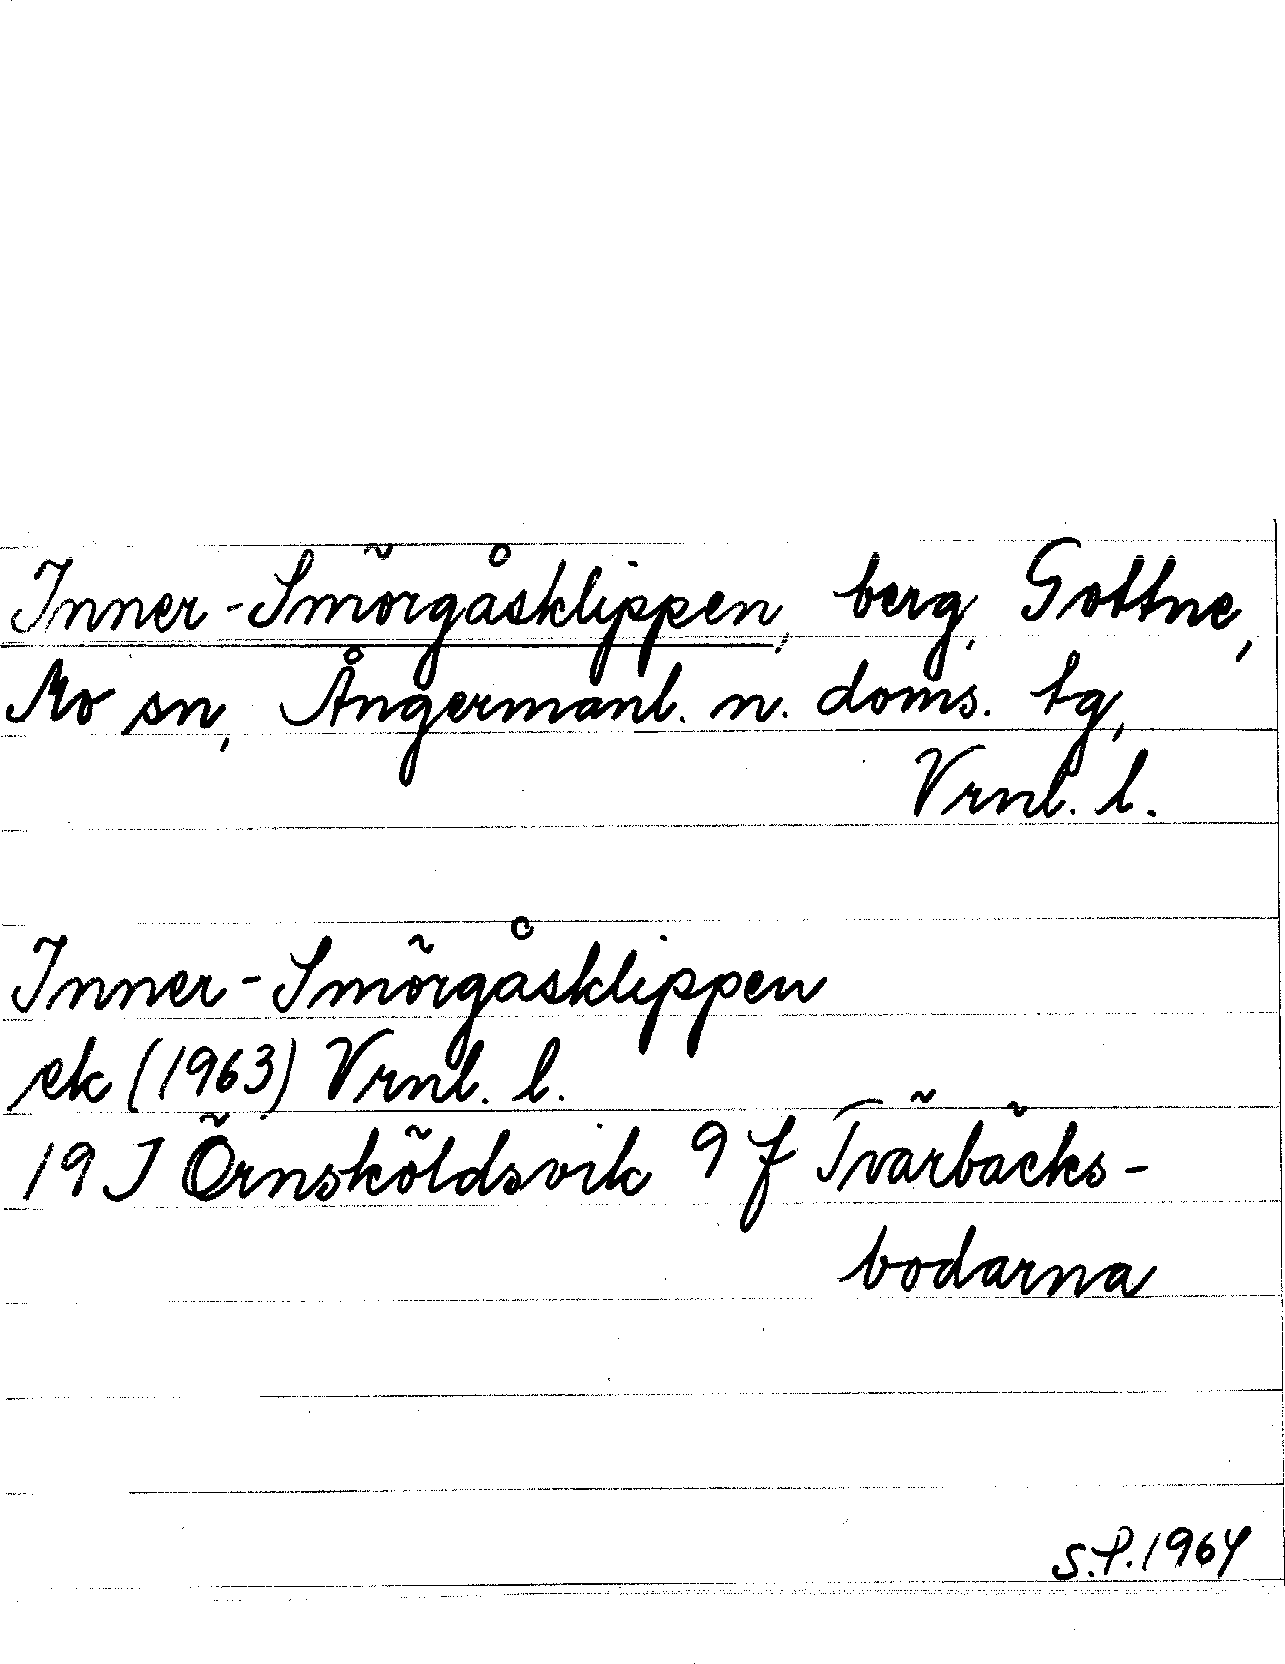 Inner-Smörgåsklippen, berg, Gottne,
Mo sn, Ångermanl. n. doms. tg,
Vrnl. l.
Inner-Smörgåsklippen
ek (1963) Vrnl. l.
19 J Örnsköldsvik 9 f Tvärbäcks-
bodarna
S.P. 1964